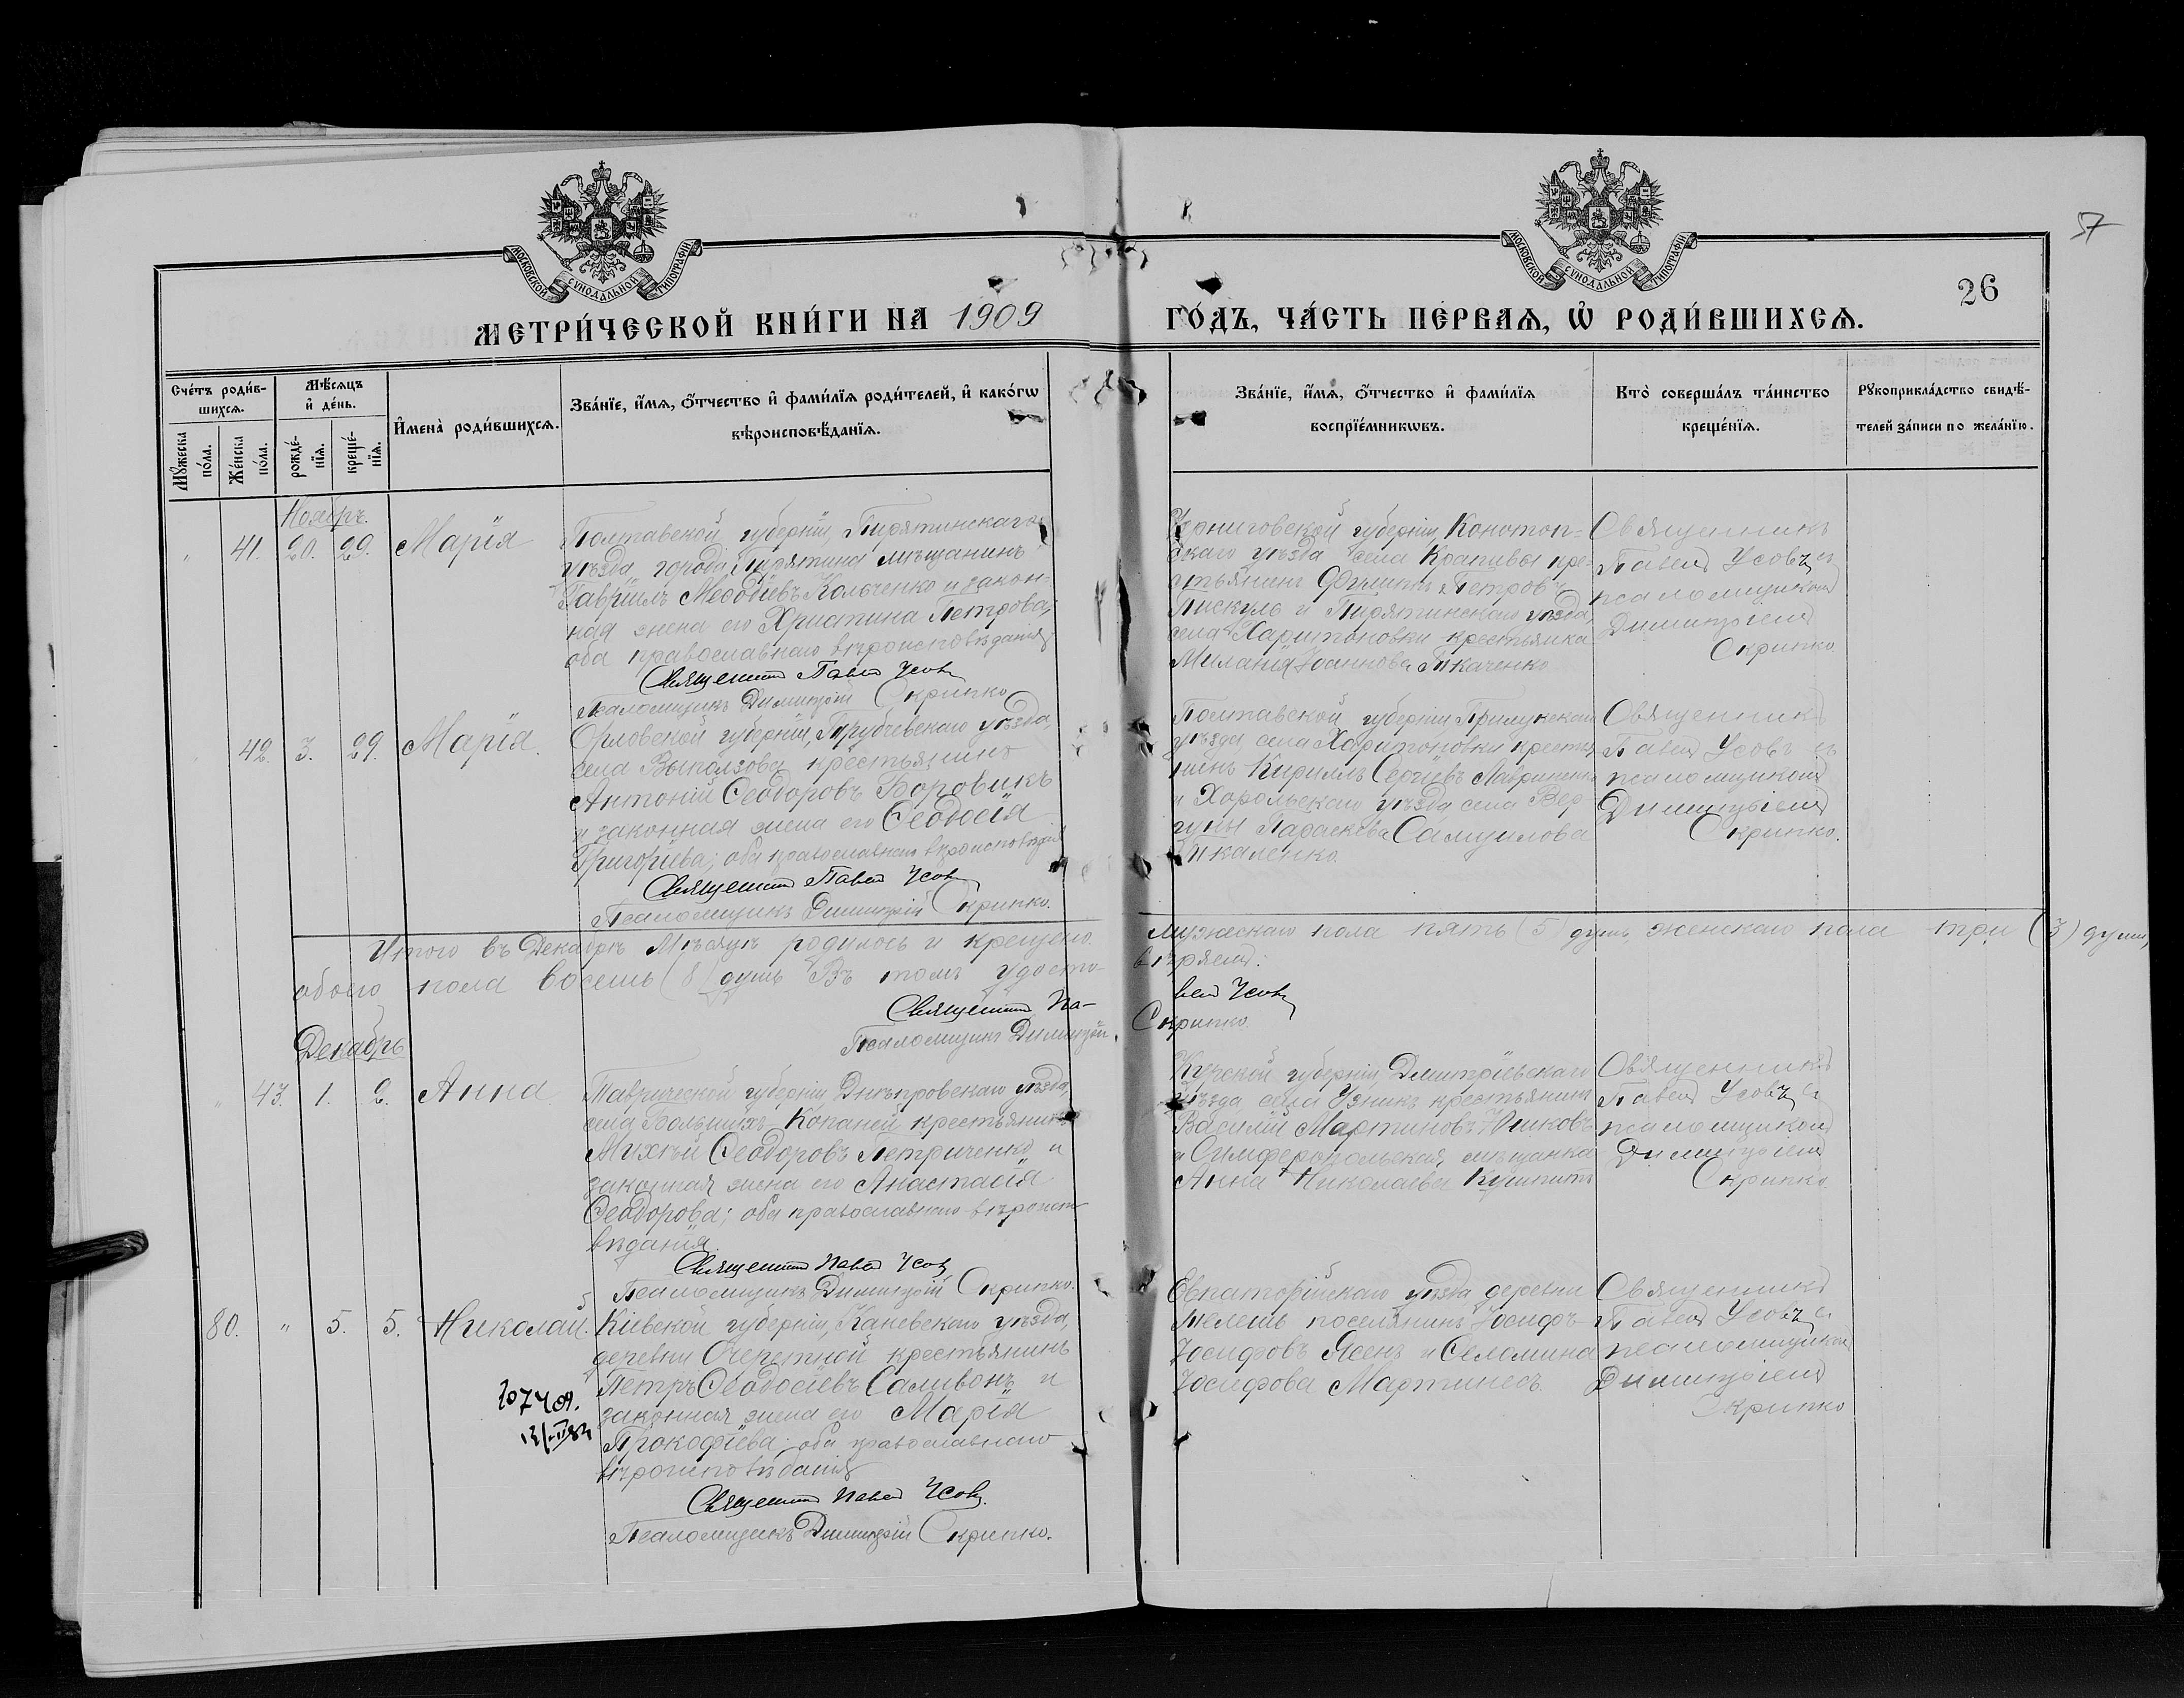 57
26
МОСКОВСКОЙ СУНОДАЛЬНОЙ ТИПОГРАФІИ
МОСКОВСКОЙ СУНОДАЛЬНОЙ ТИПОГРАФІИ
МЕТРИ́ЧЕСКОЙ КНИ́ГИ НА 1909 ГО́ДЪ, ЧА́СТЬ ПЕ́РВАѦ, Ѡ҆ РОДИ́ВШИХСѦ.
Сче́тъ роди́в-
шихсѧ.
Мѣ́сѧцъ
и҆ де́нь.
Мꙋ́жеска
по́ла.
Же́нска
по́ла.
рожде́-
нїѧ.
креще́-
нїѧ.
И҆мена̀ роди́вшихсѧ.
Зва́нїе, и҆́мѧ, ѻ҆́тчество и҆ фами́лїѧ роди́телей, и҆ како́гѡ
вѣроисповѣ́данїѧ.
Зва́нїе, и҆́мѧ, ѻ҆́тчество и҆ фами́лїѧ
воспрїе́мникѡвъ.
Кто̀ соверша́лъ та́инство
креще́нїѧ.
Рꙋкоприкла́дство свидѣ́-
телей за́писи по жела́нїю.
Ноябрь.
" 41. 20. 29. Марія
Полтавской губерніи, Пирятинскаго
уѣзда города Пирятина мѣщанинъ
Гавріилъ Меѳодіевъ Кольченко и закон-
ная жена его Христина Петрова,
оба православнаго вѣроисповѣданія
Священникъ Павелъ Усовъ
Псаломщикъ Димитрій Скрипко
Черниговской губерніи, Конотоп-
скаго уѣзда села Крапивы кре-
стьянинъ Филиппъ Петровъ
Пискунъ и Пирятинскаго уѣзда,
села Харитоновки крестьянка
Миланія Іоаннова Ткаченко
Священникъ
Павелъ Усовъ съ
псаломщикомъ
Димитріемъ
Скрипко.
42. 3. 29. Марія.
Орловской губерніи, Трубчевскаго уѣзда,
села Выползова крестьянинъ
Антоній Ѳеодоровъ Боровикъ
и законная жена его Ѳеодосія
Григоріева; оба православнаго вѣроисповѣданія
Священникъ Павелъ Усовъ
Псаломщикъ Димитрій Скрипко.
Полтавской губерніи Прилукскаго
уѣзда, села Харитоновки крестья-
нинъ Кириллъ Сергіевъ Лавриненко
и Хорольскаго уѣзда села Вер-
гуны Параскева Самуилова
Священникъ
Павелъ Усовъ съ
псаломщикомъ
Димитріемъ
Скрипко.
Итого въ Декабрѣ мѣсяцѣ родилось и крещено мужескаго пола пять (5) душъ, женскаго пола три (3) души,
обоего пола восемь (8) душъ Въ томъ удосто- вѣряемъ:
Священникъ Па- велъ Усовъ
Псаломщикъ Димитрій Скрипко.
Декабрь
" 43. 1. 2. Анна
Таврической губерніи Днѣпровскаго уѣзда,
села Большихъ Копаней крестьянинъ
Михѣй Ѳеодоровъ Петриченко и
законная жена его Анастасія
Ѳеодорова; оба православнаго вѣроиспо-
вѣданія.
Священникъ Павелъ Усовъ
Псаломщикъ Димитрій Скрипко.
Курской губерніи Дмитріевскаго
уѣзда села Узникъ крестьянинъ
Василій Мартиновъ Юшковъ
и Симферопольская мѣщанка
Анна Николаева
Священникъ
Павелъ Усовъ съ
псаломщикомъ
Димитріемъ
Скрипко.
80. " 5. 5. Николай.
Кіевской губерніи, Каневскаго уѣзда,
деревни Очеретной крестьянинъ
Петръ Ѳеодосіевъ Саливонъ и
законная жена его Марія
Прокофіева; оба православнаго
вѣроисповѣданія
Священникъ Павелъ Усовъ.
Псаломщикъ Димитрій Скрипко.
Евпаторійскаго уѣзда деревни
поселянинъ Іосифъ
Іосифовъ Ясенъ и Селомина
Іосифова Мартинесъ.
Священникъ
Павелъ Усовъ съ
псаломщикомъ
Димитріемъ
Скрипко